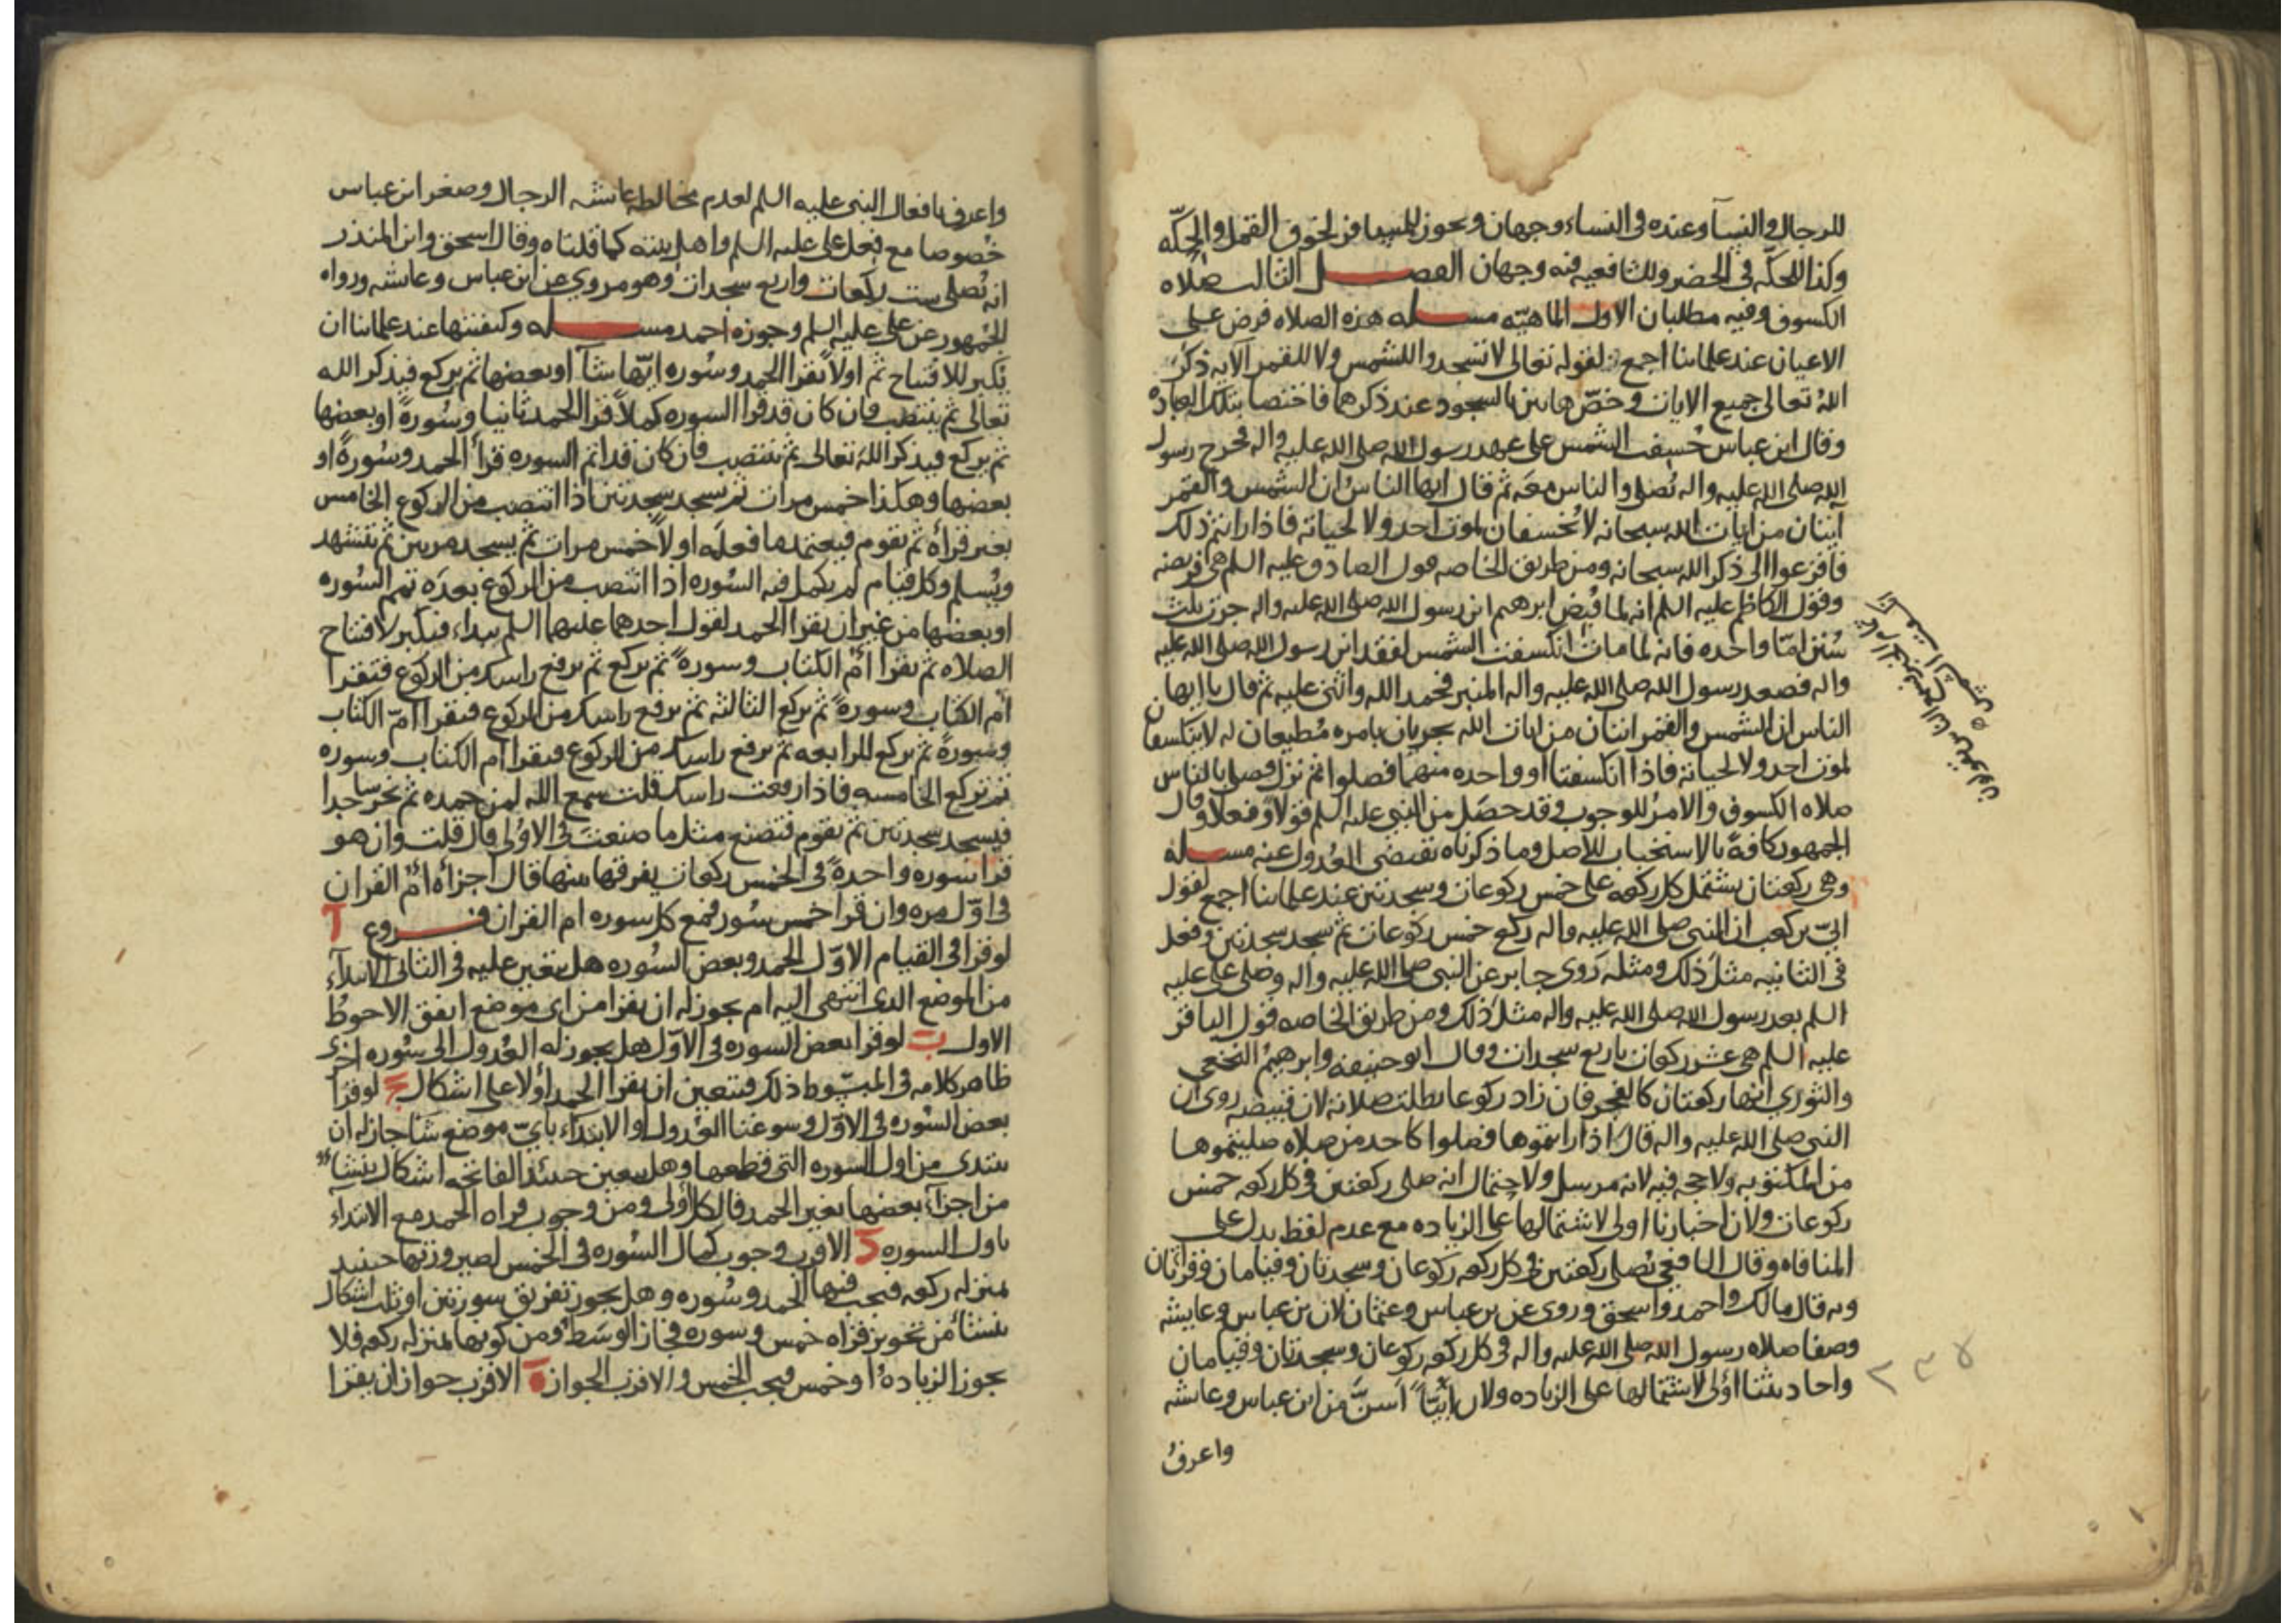 للرجال والنسآ وعنده في النساء وجهان ويجوز للمسافر لخوف القمل والحكّه
وكذا للحكّه في الحضر وللشافعيه فيه وجهان الفصل الثالث صلاه
الكسوف وفيه مطلبان الاول الماهيّه مسله هذه الصلاه فرض على
الاعيان عند علمائنا اجمع لقوله تعالى لا تسجدوا للشمس ولا للقمر الآيه ذكر
اللهُ تعالى جميع الايات وخصّ هاتين بالسجود عند ذكرهما فاختصا بتلك العباده
وقال ابن عباس خُسِفت الشمس على عهد رسول الله صلى الله عليه واله فخرج رسول
الله صلى الله عليه واله يُصلي والناس معَه ثم قال ايها الناسُ ان الشمس والقمر
آيتان من ايات الله سبحانه لا يُخسفان لموت احد ولا لحياته فاذا رايتم ذلك
فافزعوا الى ذكر الله سبحانه ومن طريق الخاصه قول الصادق عليه السلم هي فريضه
وقول الكاظم عليه السلم انه لما قُبِض ابرهيم ابن رسول الله صلى الله عليه واله جرت ثلث
سُنن امّا واحده فانه لما مات انكسفت الشمس لفقد ابن رسول الله صلى الله عليه
واله فصعد رسول الله صلى الله عليه واله المنبر فحمد الله واثنى عليه ثم قال يا ايها
الناس ان الشمس والقمر ايتان من ايات الله يجريان بامره مُطيعان له لا ينكسفان
لموت احد ولا لحياته فاذا انكسفتا او واحده منهما فصلوا ثم نزل فصلى بالناس
صلاه الكسوف والامرُ للوجوب وقد حصَل من النبي عليه السلم قولاً وفعلاً وقال
الجمهور كافةً بالاستحباب للاصل وما ذكرناه يقتضى العُدول عنه مسله
وهي ركعتان يشتمل كل ركعه على خمس ركوعات وسجدتين عند علمائنا اجمع لقول
ابيّ بن كعب ان النبي صلى الله عليه واله ركع خمس ركوعات ثم سجد سجدتين وفعل
في الثانيه مثل ذلك ومثله رَوى جابر عن النبي صلى الله عليه واله وصلى علي عليه
السلم بعد رسول الله صلى الله عليه واله مثل ذلك ومن طريق الخاصه قول الباقر
عليه السلم هي عشر ركعات باربع سجدات وقال ابو حنيفه وابرهيمُ النخعي
والثوري انها ركعتان كالفجر فان زاد ركوعا بطلت صلاته لان قبيصه روى ان
النبي صلى الله عليه واله قال اذا رايتموها فصلوا كاحدث صلاه صليتموها
من المكتوبه ولا حجه فيه لانه مرسل ولاحتمال انه صلى ركعتين في كل ركعه خمس
ركوعات ولان اخبارنا اولى لاشتمالها على الزياده مع عدم لفظ يدل على
المنافاه وقال الشافعي تُصلى ركعتين في كل ركعه ركوعان وسجدتان وقيامان وقرائتان
وبه قال مالك واحمد واسحق وروى عن ابن عباس وعثمان لان ابن عباس وعايشه
وصفا صلاه رسول الله صلى الله عليه واله في كل ركعه ركوعان وسجدتان وقيامان
واحاديثنا اوْلى لاشتمالها على الزياده ولان اُبيّاً اسنّ من ابن عباس وعايشه
واعرفُ
واعرف بافعال النبي عليه السلم لعدم مخالطه عايشه الرجال وصغر ابن عباس
خصُوصا مع فعل علي عليه السلم واهل بيته كما قلناه وقال اسحق وابن المنذر
انه تُصلى ست ركعات واربع سجدات وهو مروي عن ابن عباس وعايشه ورواه
الجُمهور عن علي عليه السلم وجوزه احمد مسله وكيفيتها عند علمائنا ان
يكبر للافتتاح ثم اولاً يقرا الحمد وسُوره ايّها شآ او بعضها ثم يركع فيذكر الله
تعالى ثم ينتصب فان كان قد قرا السوره كملاً قرا الحمد ثانيا وسُورهً او بعضها
ثم يركع فيذكر الله تعالى ثم ينتصب فان كان قد اتم السوره قرأ الحمد وسُورهً او
بعضها وهكذا خمس مرات ثم يسجد سجدتين اذا انتصب من الركوع الخامس
بغير قرأه ثم يقوم فيعتمد ما فعله اولاً خمس مرات ثم يسجد مرتين ثم يتشهد
ويُسلم وكل قيام لم يكمل فيه السُوره اذا انتصب من الركوع بعده تمم السُوره
او بعضها من غير ان يقرا الحمد لقول احدهما عليهما السلم يبداء فيكبر لافتتاح
الصلاه ثم يقرا امّ الكتاب وسورهً ثم يركع ثم يرفع راسك من الركوع فتقرا
ام الكتاب وسورهً ثم يركع الثالثه ثم يرفع راسك من الركوع فتقرا امّ الكتاب
وسورهً ثم يركع الرابعه ثم يرفع راسك من الركوع فتقرا ام الكتاب وسوره
ثم تركع الخامسه فاذا رفعت راسك قلت سمع الله لمن حمده ثم تخر ساجدا
فيسجد سجدتين ثم يقوم فتصنع مثل ما صنعت في الاوُلى قال قلت وان هو
قرا سوره واحدهً في الخمس ركعات يفرقها بينها قال اجزأه امّ القران
في اوّل مره وان قرا خمس سُور فمع كل سوره ام القران فروع ا
لو قرا في القيام الاوّل الحمد وبعض السُوره هل يتعين عليه في الثاني الابتداء
من الموضع الدى انتهى اليه ام يجوز له ان يقرا من اى موضع اتفق الاحوطُ
الاول ب لو قرا بعض السوره في الاوّل هل يجوز له العُدول الى سُوره اخرى
ظاهر كلامه في المبسُوط ذلك فيتعين ان يقرا الحمد اوْلا على اشكال ج لو قرا
بعض السُوره في الاوّل وسوغنا العُدول او الابتداء بايّ موضع شآ جاز له ان
يبتدى من اول السوره التي قطعها وهل يتعين حينئذ الفاتحه اشكال ينشا
من اجزآء بعضها بغير الحمد فالكل اولى ومن وجوب قراه الحمد مع الابتداء
باول السوره د الاقرب وجوب كمال السُوره في الخمس لصيرورتها حينئذ
بمنزله ركعه فيجب فيها الحمد وسُوره وهل يجوز تفريق سورتين او ثلث اشكال
ينشا من تجويز قراه خمس وسوره فجاز الوسَط ومن كونها بمنزله ركعه فلا
يجوز الزياده او خمس فيجب الخمس والاقرب الجواز ه الاقرب جواز ان يقرا